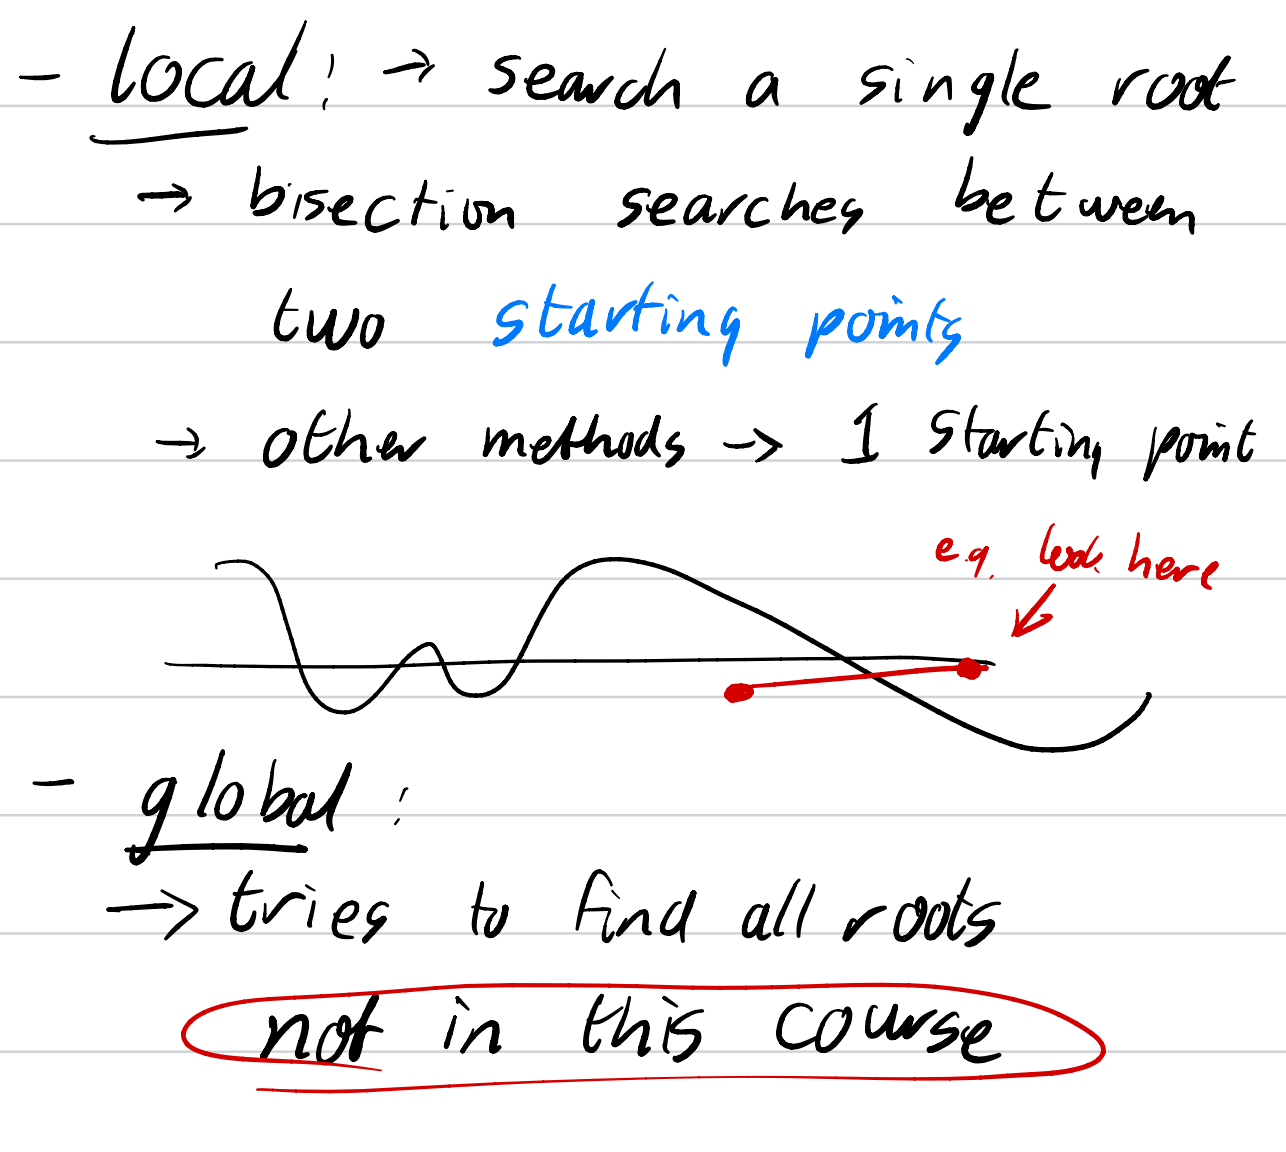 - local: → search a single root
→ bisection searches between
two starting points
→ other methods → 1 starting point
e.g. look here
- global:
→ tries to find all roots
not in this course